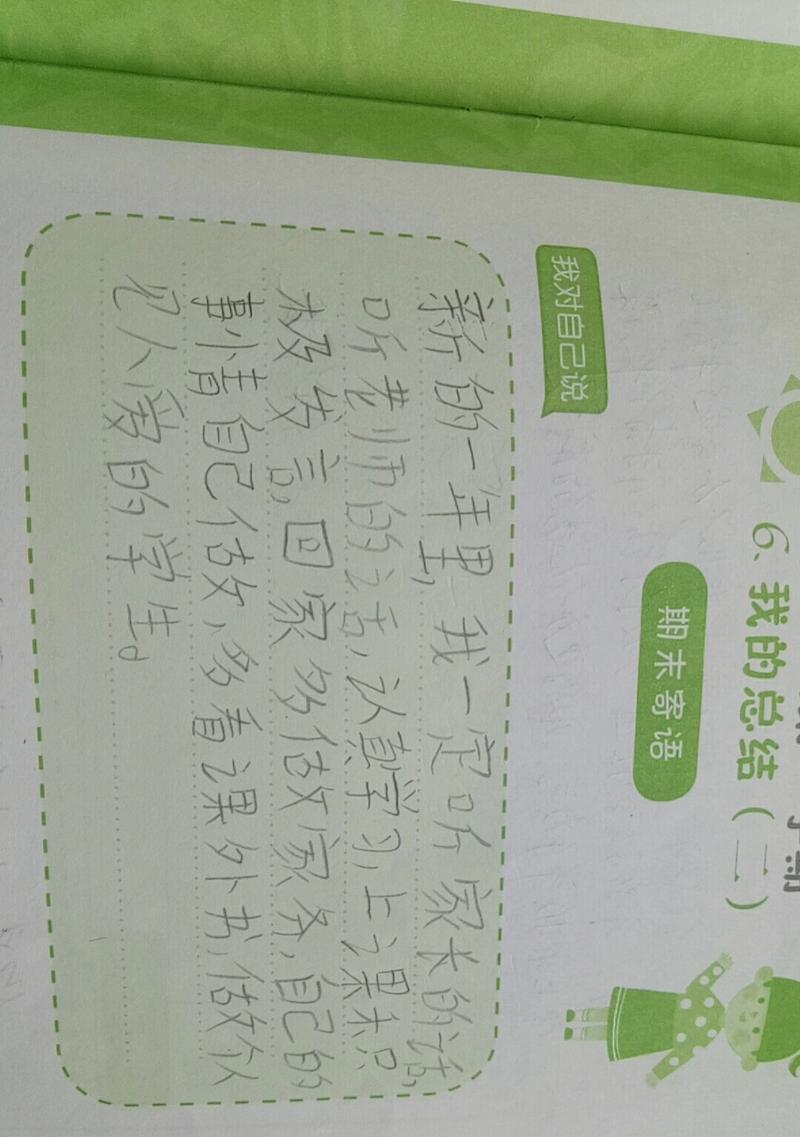 6、我的总结（二）
期末寄语
我对自己说
新的一年里，我一定听家长的话，
听老师的话，认真学习，上课积
极发言，回家多做家务，自己的
事情自己做，多看课外书，做个人
见人爱的学生。